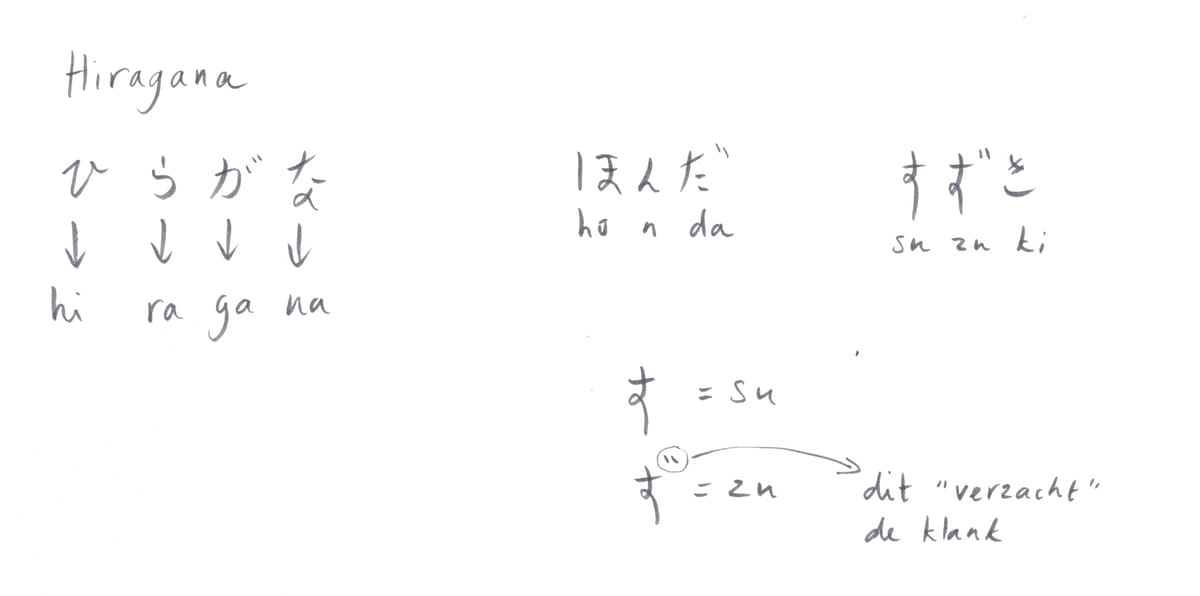 Hiragana
ひらがな
↓ ↓ ↓ ↓
hi ra ga na
ほんだ
ho n da
すずき
su zu ki
す = su
ず = zu
dit "verzacht"
de klank